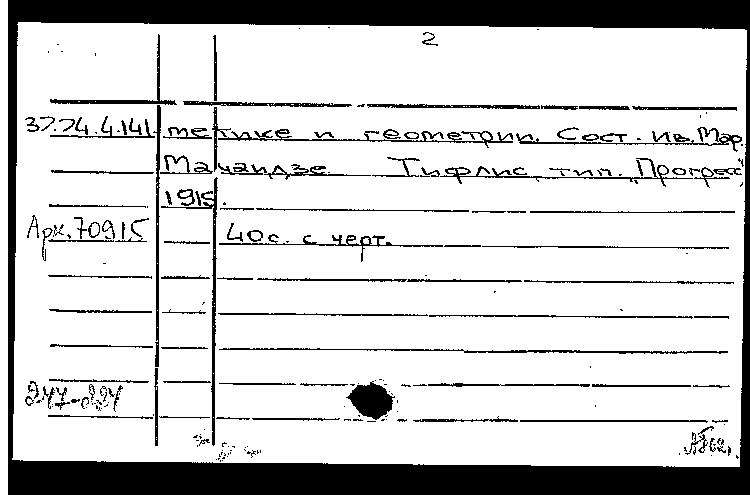 2
37.24.4.141 метике и геометрии. Сост. Ив. Мар.
Мачаидзе Тифлис, тип. „Прогресс",
1915.
Арх. 70915 40 с. с черт.
247-224